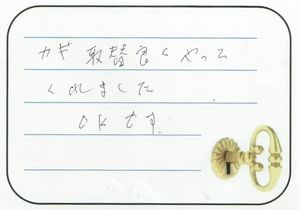 カギ取替良くやって
くれました
OKです.